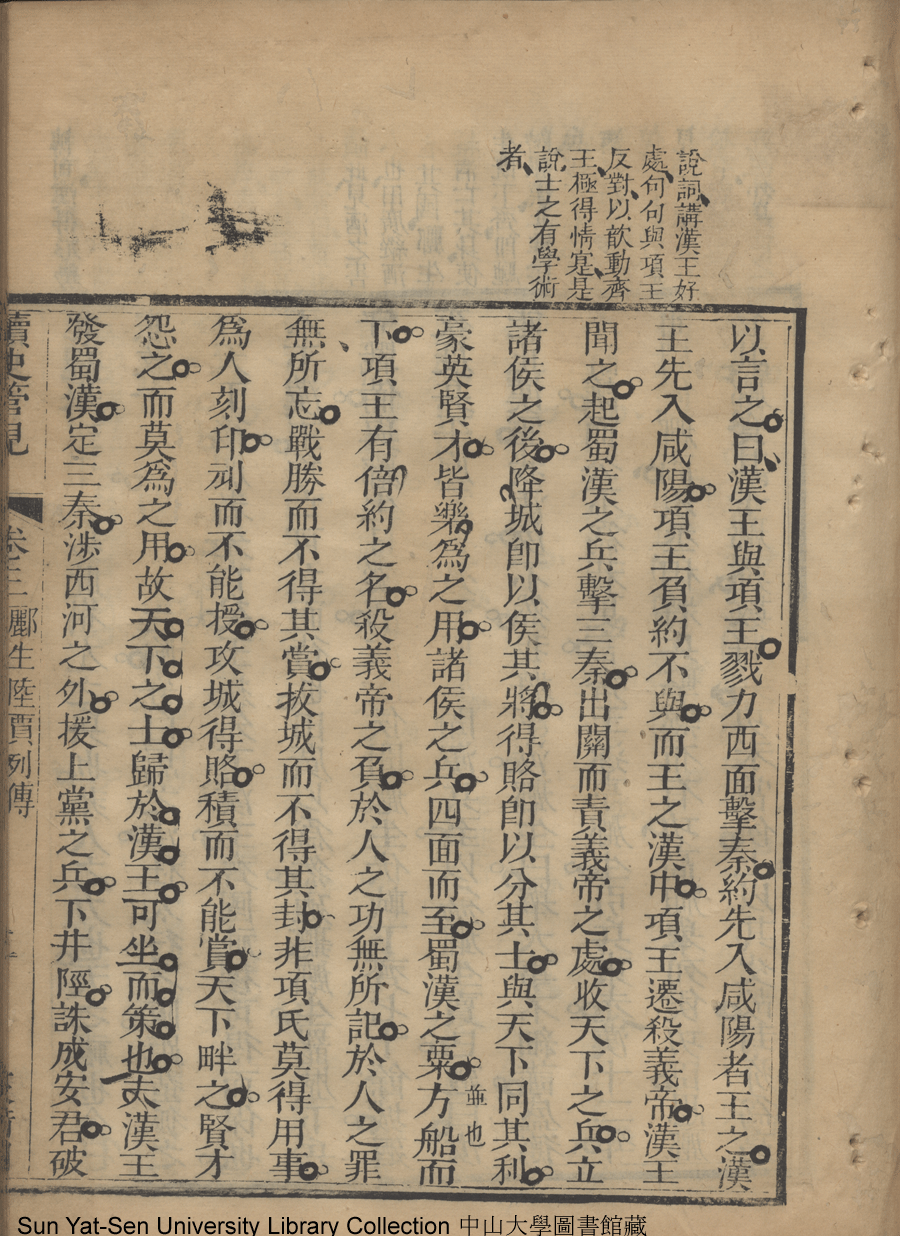 說詞講漢王好
處句句與項王
反對以歆動齊
王極得情寔是
說士之有學術
者
以言之曰漢王與項王戮力西面擊秦約先入咸陽者王之漢
王先入咸陽項王負約不與而王之漢中項王遷殺義帝漢王
聞之起蜀漢之兵擊三秦出關而責義帝之處收天下之兵立
諸侯之後降城卽以侯其將得賂卽以分其士與天下同其利
豪英賢才皆樂爲之用諸侯之兵四面而至蜀漢之粟方船而
並也
下項王有倍約之名殺義帝之負於人之功無所記於人之罪
無所忘戰勝而不得其賞拔城而不得其封非項氏莫得用事
爲人刻印刓而不能授攻城得賂積而不能賞天下畔之賢才
怨之而莫爲之用故天下之士歸於漢王可坐而策也夫漢王
發蜀漢定三秦涉西河之外援上黨之兵下井陘誅成安君破
讀史管見
卷三 酈生陸賈列傳
Sun Yat-Sen University Library Collection 中山大學圖書館藏